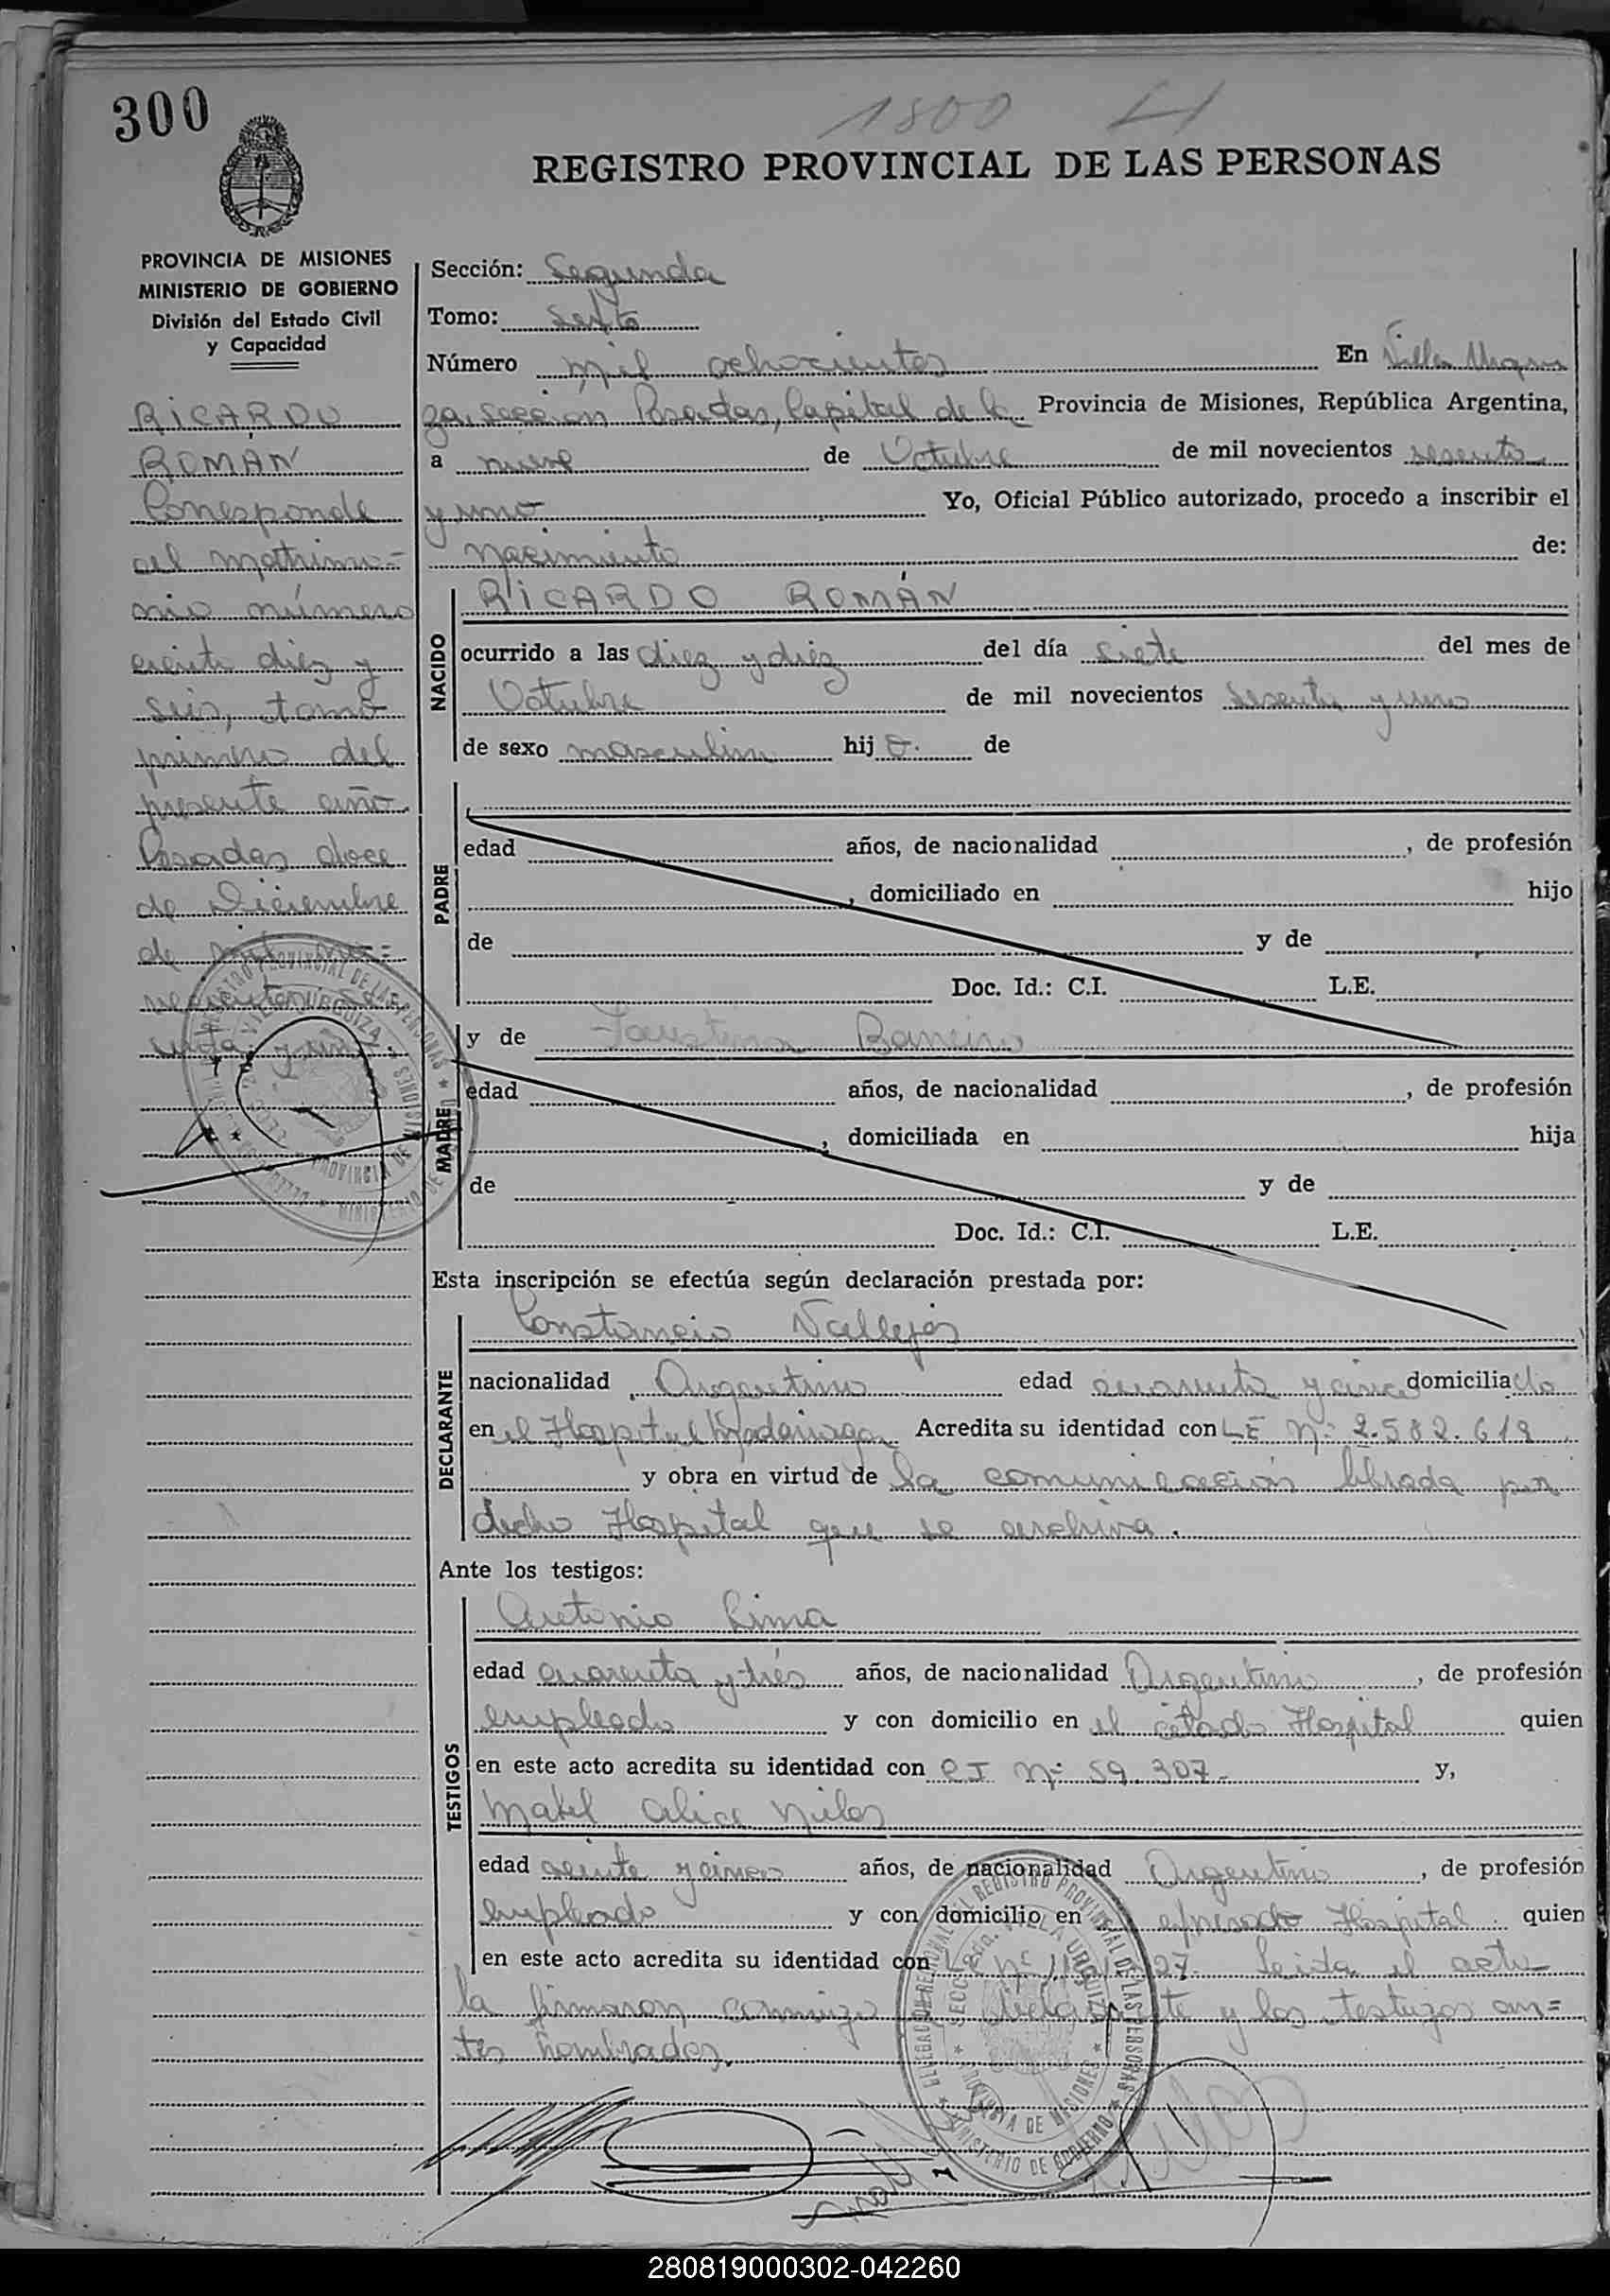 300
1800
REGISTRO PROVINCIAL DE LAS PERSONAS
PROVINCIA DE MISIONES
MINISTERIO DE GOBIERNO
División del Estado Civil
y Capacidad
RICARDO
ROMÁN
Corresponde
al matrimo=
nio número
ciento diez y
seis, tomo
primero del
presente año.
Posadas doce
de Diciembre
de mil no=
vecientos se=
senta y uno.
Sección: Segunda
Tomo: Sexto
Número mil ochocientos En Villa Urqui
za, sección Posadas, Capital de la Provincia de Misiones, República Argentina,
a nueve de Octubre de mil novecientos sesenta
y uno Yo, Oficial Público autorizado, procedo a inscribir el
nacimiento de:
NACIDO
RICARDO ROMÁN
ocurrido a las diez y diez del día siete del mes de
Octubre de mil novecientos sesenta y uno
de sexo masculino hij o. de
PADRE
edad años, de nacionalidad , de profesión
, domiciliado en hijo
de y de
Doc. Id.: C.I. L.E.
y de Faustina Barreiro
MADRE
edad años, de nacionalidad , de profesión
, domiciliada en hija
de y de
Doc. Id.: C.I. L.E.
Esta inscripción se efectúa según declaración prestada por:
DECLARANTE
Constancio Vallejos
nacionalidad Argentino edad cuarenta y cinco domiciliado
en el Hospital Madariaga Acredita su identidad con LE Nº 2.582.619
y obra en virtud de la comunicación librada por
dicho Hospital que se archiva.
Ante los testigos:
TESTIGOS
Antonio Lima
edad cuarenta y tres años, de nacionalidad Argentino , de profesión
empleado y con domicilio en el citado Hospital quien
en este acto acredita su identidad con CI Nº 59.307.- y,
Mabel Alice
edad veinte y cinco años, de nacionalidad Argentino , de profesión
empleado y con domicilio en expresado Hospital quien
en este acto acredita su identidad con Leida el acta
la firmaron conmigo el declarante y los testigos an=
tes nombrados.
DELEGACION REGIONAL DEL REGISTRO PROVINCIAL DE LAS PERSONAS
VILLA URQUIZA
PROVINCIA DE MISIONES
MINISTERIO DE GOBIERNO
280819000302-042260